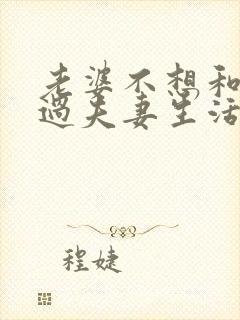 老婆不想和
过夫妻生活
程婕